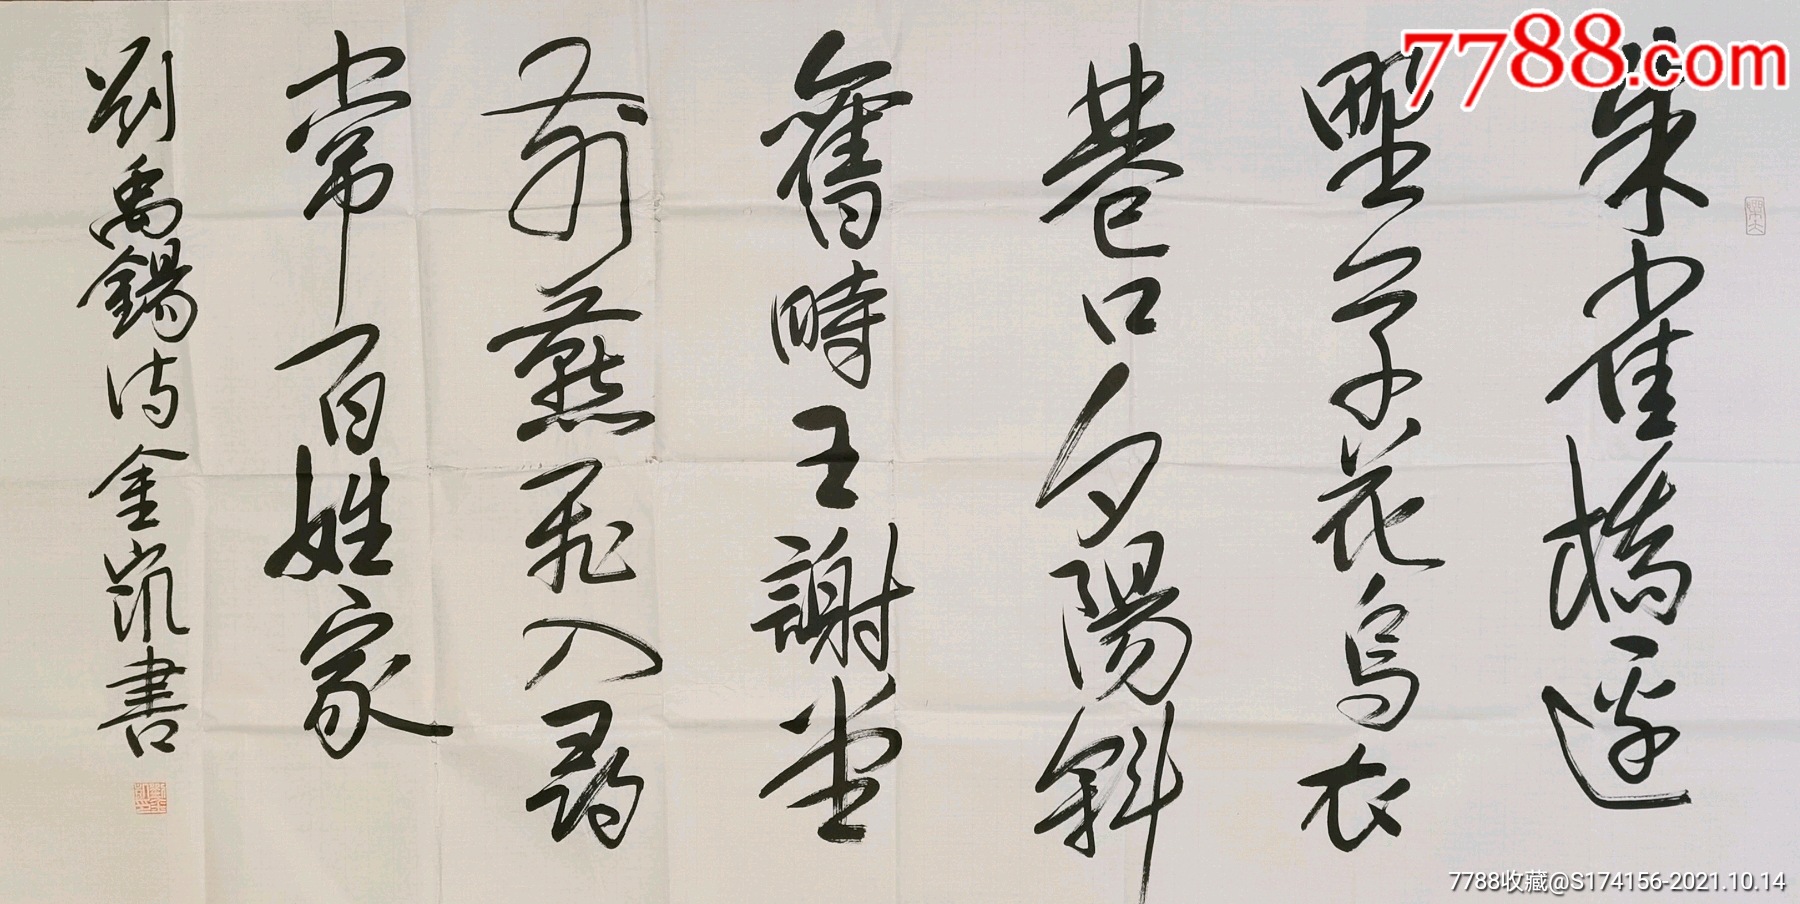 朱雀橋邊
野草花烏衣
巷口夕陽斜
舊時王謝堂
前燕飛入尋
常百姓家
劉禹錫詩金凱書
7788.com
7788收藏@S174156-2021.10.14